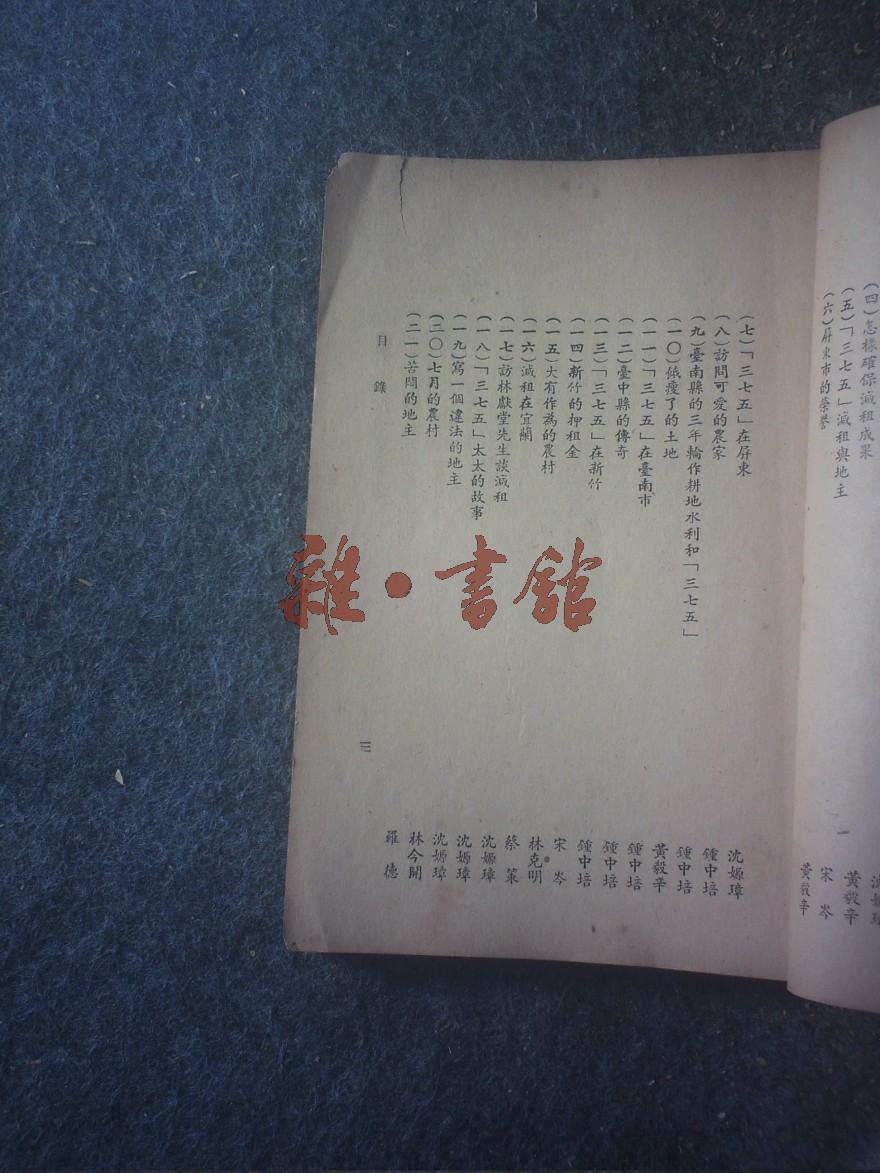 沈嫄璋
(四)怎樣確保減租成果 黃毅辛
(五)「三七五」減租與地主 宋岑
(六)屏東市的榮譽 黃毅辛
(七)「三七五」在屏東 沈嫄璋
(八)訪問可愛的農家 鍾中培
(九)臺南縣的三年輪作耕地水利和「三七五」 鍾中培
(一〇)餓瘦了的土地 黃毅辛
(一一)「三七五」在臺南市 鍾中培
(一二)臺中縣的傳奇 鍾中培
(一三)「三七五」在新竹 鍾中培
(一四)新竹的押租金 宋岑
(一五)大有作為的農村 林克明
(一六)減租在宜蘭 蔡策
(一七)訪林獻堂先生談減租 沈嫄璋
(一八)「三七五」太太的故事 沈嫄璋
(一九)寫一個違法的地主 沈嫄璋
(二〇)七月的農村 林今開
(二一)苦悶的地主 羅德
目錄
三
雜·書館